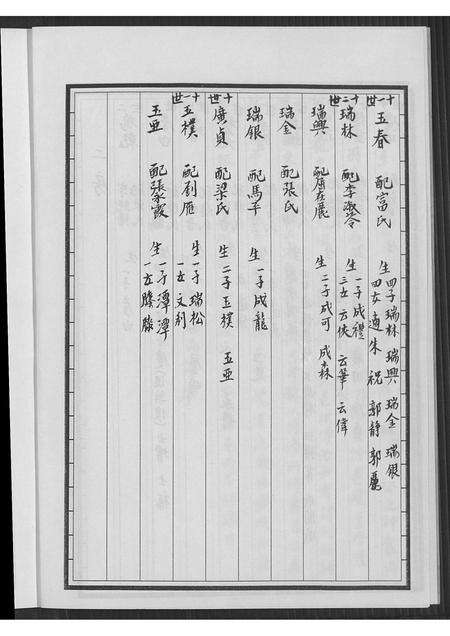 十一世 玉春 配富氏 生 四子瑞林 瑞興 瑞金 瑞銀
四女適朱 祝 郭靜 郭
十二世 瑞林 配李淑令 生 一子成禮
三女 方俠 云華 云偉
瑞興 配屈在展 生 二子成可 成森
瑞金 配張氏
瑞銀 配馬平 生 一子成龍
十世 廣貞 配梁氏 生 二子玉樸 玉亞
十一世 玉樸 配劉雁 生 一子瑞松
一女文
玉亞 配張家霞 生 一子潭潭
一女騰騰